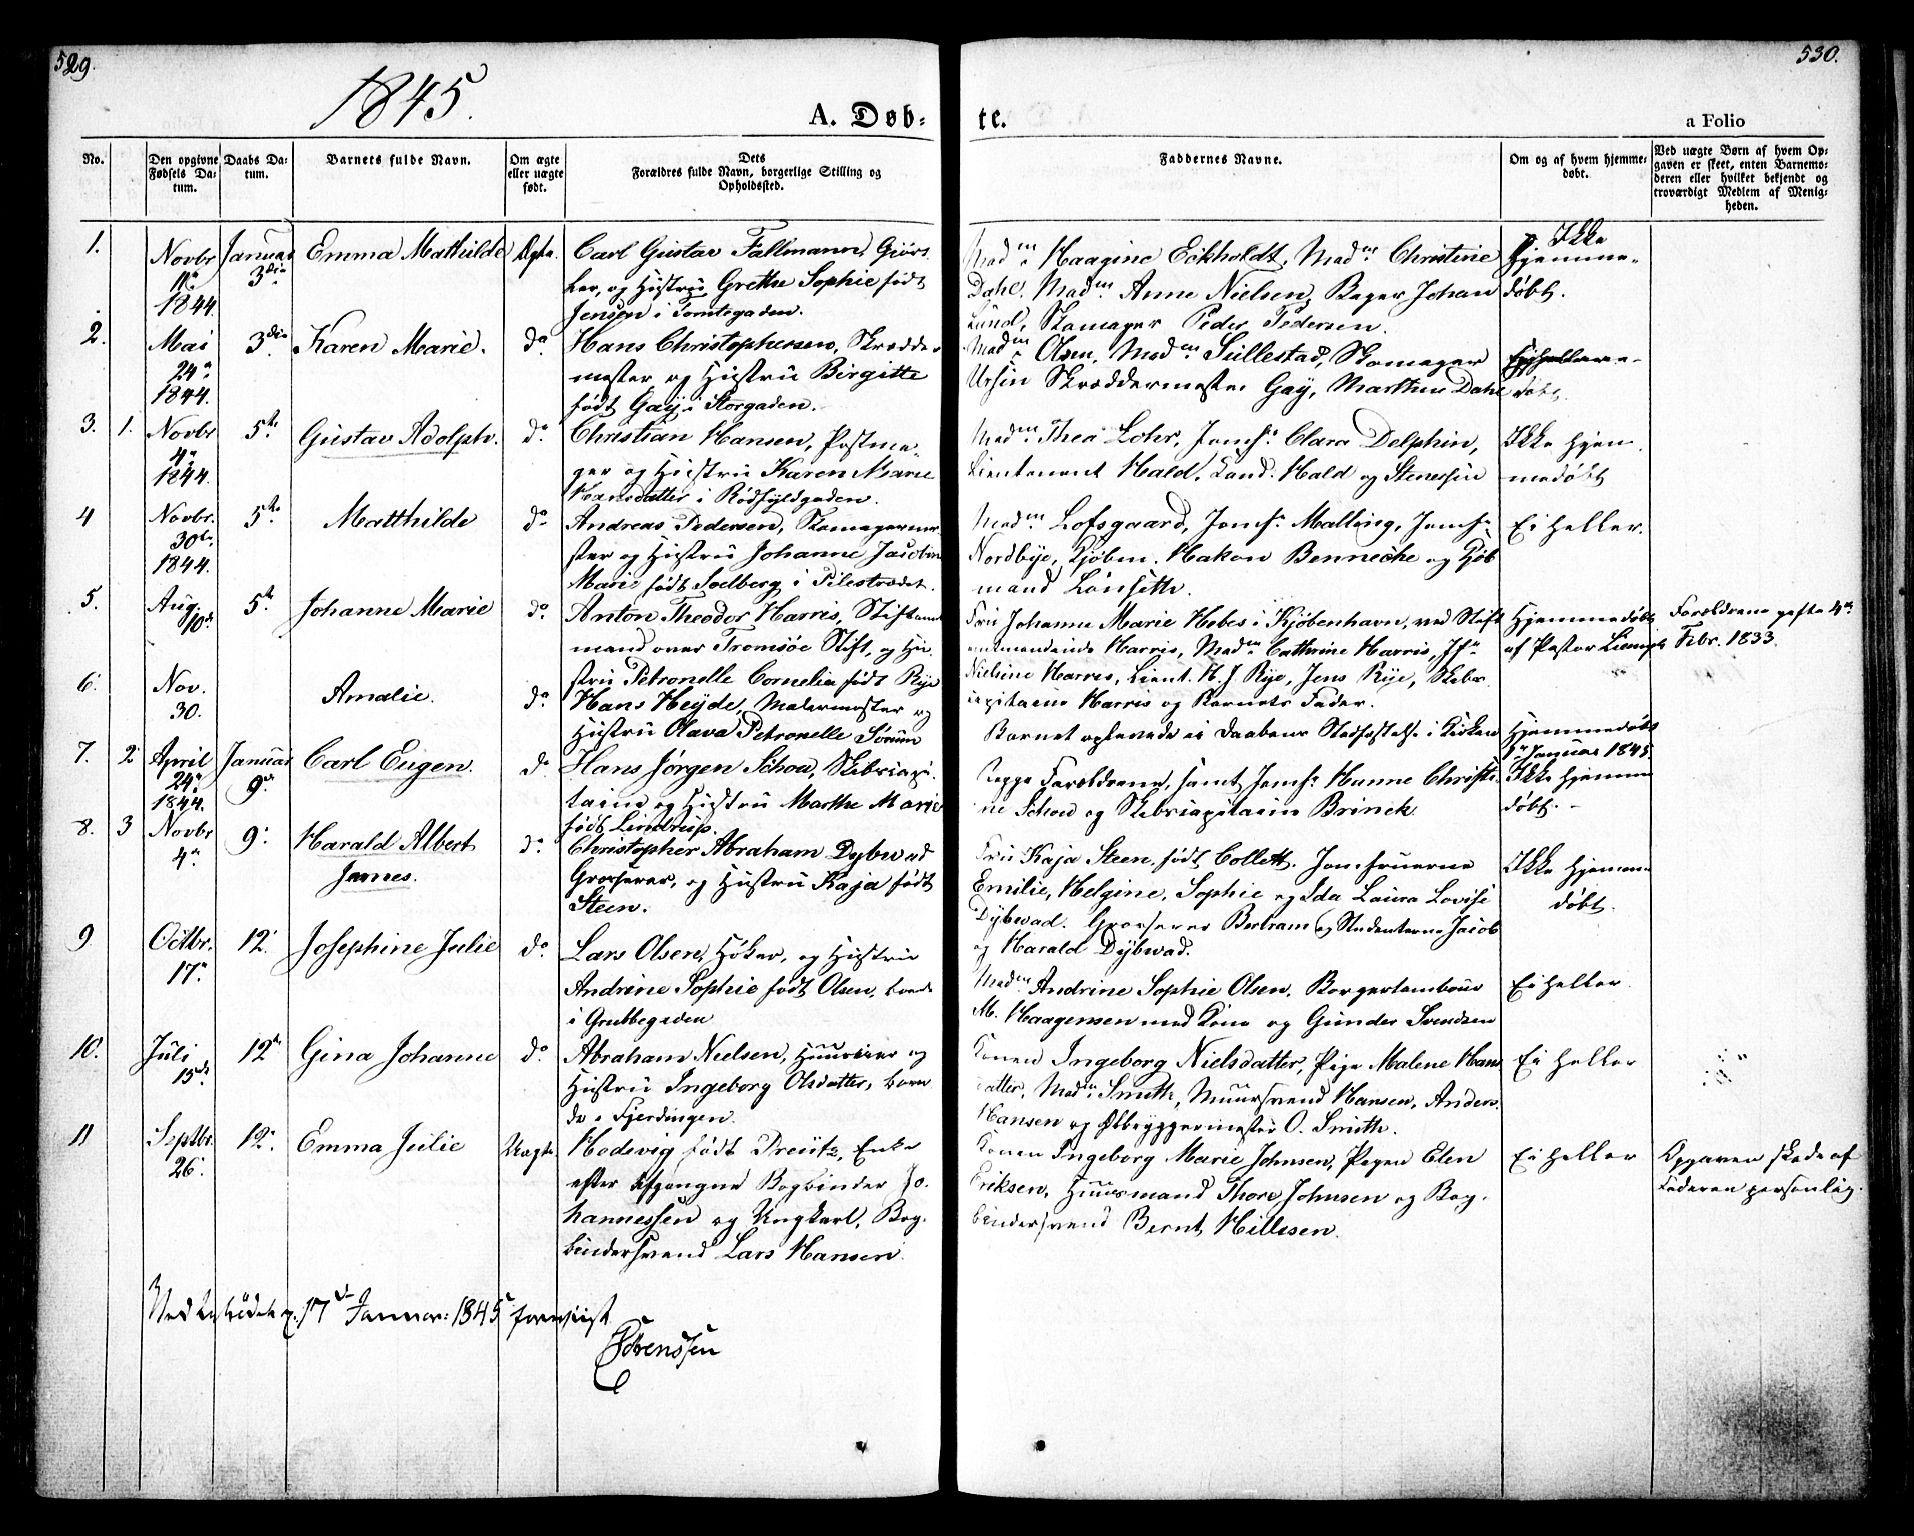 529.
530.
1845.
A. Døb-
te.
a Folio
No.
Den opgivne Fødsels Da-tum.
Daabs Da-tum.
Barnets fulde Navn.
Om ægte eller uægte født.
Dets
Forældres fulde Navn, borgerlige Stilling og
Opholdssted.
Faddernes Navne.
Om og af hvem hjemme-døbt.
Ved uægte Børn af hvem Op-
gaven er skeet, enten Barnemo-
deren eller hvilket bekjendt og
troværdigt Medlem af Menig-
heden.
1.
Novbr
1844.
Januar
3die
Emma Mathilde
Ægte.
Carl Gustav Fallmann, Gjørt
ler, og Hustru Grethe Sophie født
Jensen i Tomtegaden.
Madm Haagine Eckholdt, Madm Christine
Dahl. Madm Anne Nielsen, Bager Johan
Lund, Skomager Peder Pedersen.
Ikke
Hjemme-
døbt.
2.
Mai
24de
1844.
3die
Karen Marie.
do
Hans Christophersen, Skrædder
mester og Hustru Birgitte
født Gay i Storgaden.
Madm Olsen, Madm Sullestad, Skomager
Ursin Skræddermester Gay, Marthin Dahl
døbt.
3. 1.
Novbr
4de
1844.
5te
Gustav Adolph.
do
Christian Hansen, Postma-
ger og Hustru Karen Marie
Hansdatter i Rødfyldgaden.
Madm Thea Lohr, Jomfr Clara Delphin,
Lieutenant Hald, Cand. Hald og Stenersen
Ikke Hjem
medøbt
4
Novbr.
30te
1844.
5te
Matthilde
do
Andreas Pedersen, Skomagerme-
ster og Hustru Johanne Jacobin
Marie født Soelberg i Pilestrædet.
Madm Lofsgaard, Jomfr Malling, Jomfr
Nordbye, Kjøbm. Hakon Benneche og Kjøb
mand Lønseth.
Ei heller.
5.
Aug.
10de
5te
Johanne Marie
do
Anton Theodor Harris, Stiftamt
mand over Tromsøe Stift, og Hu-
stru Petronelle Cornelia født Rye
Fru Johanne Marie Hobes i Kjøbenhavn, ved Stift
amtmandinde Harris, Madm Cathrine Harris, Jfr
Nielsine Harris, Lieut. H. J. Rye, Jens Rye, Skibs
capitaine Harris og Barnets Fader.
Hjemmedøbt
af Pastor
Forældrene gifte 4de
Febr. 1833.
6.
Nov.
30.
Amalie.
do
Hans Heyde, Malermester og
Hustru Olava Petronelle Sørum
Barnet oplevede ei Daabens Stadfæstelse i Kirken
Hjemmedøbt
1de Januar 1845.
7. 2
April
24de
1844.
Januar
9de
Carl Eugen.
do
Hans Jørgen Schou, Skibscapi-
taine og Hustru Marthe Marie
født Lindrup.
Begge Forældrene, samt Jomfr Hanne Christi-
ne Schou og Skibscapitaine Brinck.
Ikke Hjemme
døbt.
8. 3
Novbr
4de
9de
Harald Albert
James.
do
Christopher Abraham Dybwad
Grosserer, og Hustru Kaja født
Steen.
Fru Kaja Steen, født Collett. Jomfruerne
Emilie, Helgine, Sophie og Ida Laura Lovise
Dybwad. Grosserer Bertram og Studenterne Jacob
og Harald Dybwad.
Ikke Hjemme
døbt.
9
Octbr.
17de
12te
Josephine Julie
do
Lars Olsen, Høker, og Hustru
Andrine Sophie født Olsen, boende
i Grubbegaden
Madm Andrine Sophie Olsen, Borgertambour
M. Haagensen med Kone og Gunder Svendsen
Ei heller.
10.
Juli
15de
12te
Gina Johanne
do
Abraham Nielsen, Huuseier og
Hustru Ingeborg Olsdatter, boen
de i Fjerdingen.
Konen Ingeborg Nielsdatter, Pige Malene Hans
datter, Madm Smith, Muursvend Hansen, Anders
Hansen og Ølbryggermester O. Smith.
Ei heller
11
Septbr.
26.
12te
Emma Julie
Uægte.
Hedevig født Preutz, Enke
efter afgangne Bogbinder Jo-
hannessen og Ungkarl, Bog-
bindersvend Lars Hansen.
Konen Ingeborg Marie Johnsen, Pigen Elen
Eriksen, Huusmand Thore Johnsen og Bog-
bindersvend Bernt Hillesen.
Ei heller
Opgaven skede af
Faderen personlig.
17de Januar: 1845 foreviist
Sørenssen